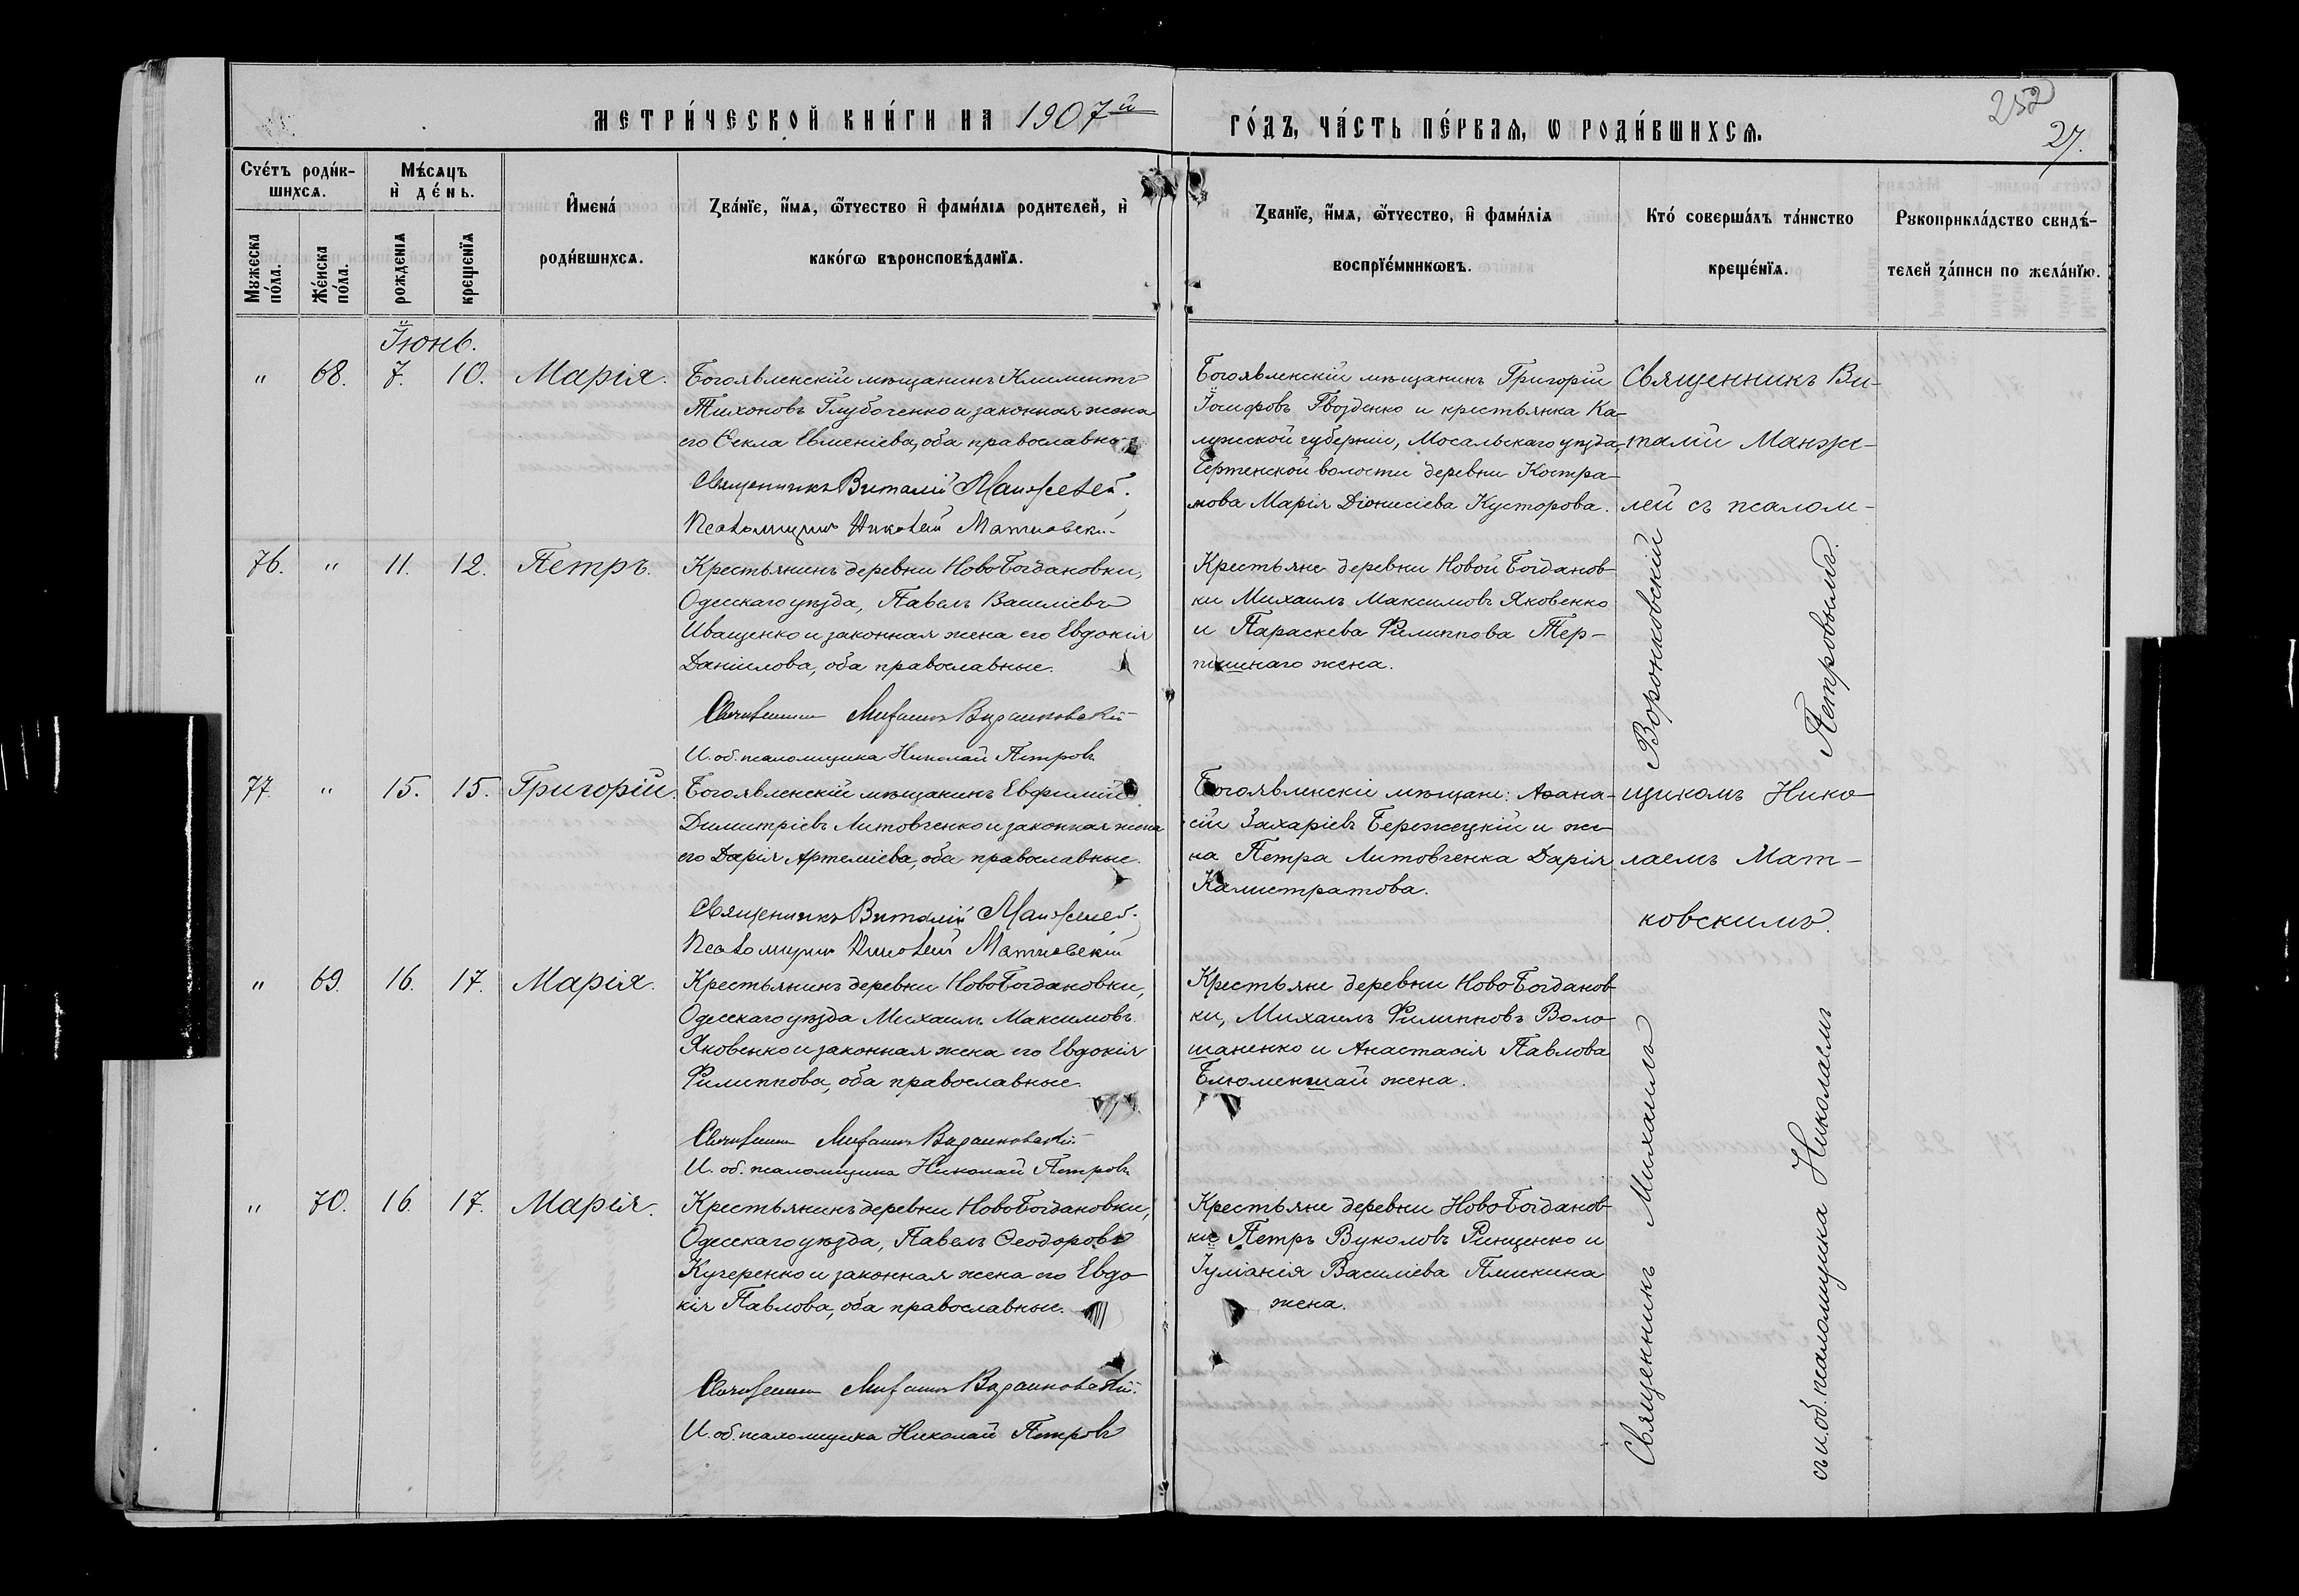 МЕТРИ́ЧЕСКОЙ КНИ́ГИ НА 1907й ГО́ДЪ, ЧА́СТЬ ПЕ́РВАѦ, Ѡ РОДИ́ВШИХСѦ.
252
27.
Счётъ роди́вшихсѧ.
Мужеска по́ла.
Же́нска по́ла.
Мѣ́сѧцъ и҆ де́нь.
рожденїѧ
крещенїѧ
И҆мена́ роди́вшихсѧ.
Зва́нїе, и҆́мѧ, ѻ҆́тчество и҆ фами́лїѧ родителей, и҆ како́гѡ вѣроисповѣ́данїѧ.
Званїе, и҆́мѧ, ѻ҆́тчество, и҆ фами́лїѧ воспрїе́мникѡвъ.
Кто́ соверша́лъ та́инство креще́нїѧ.
Рукоприкла́дство свидѣ́телей за́писи по жела́нїю.
Іюнь.
" 68. 7. 10. Марія.
Богоявленскій мѣщанинъ Климентъ
Тихоновъ Глубоченко и законная жена
его Ѳекла Евменіева, оба православные
Священникъ Виталій Манжелей.
Псаломщикъ Николай Матковскій
Богоявленскій мѣщанинъ Григорій
Іосифовъ Гвозденко и крестьянка Ка-
лужской губерніи, Мосальскаго уѣзда,
Чертенской волости деревни Костра-
мова Марія Діонисіева Кусторова.
76. " 11. 12. Петръ.
Крестьянинъ деревни НовоБогдановки,
Одесскаго уѣзда, Павелъ Василіевъ
Иващенко и законная жена его Евдокія
Даніилова, оба православные.
Священникъ Михаилъ Воронковскій
И. об. псаломщика Николай Петровъ
Крестьяне деревни Новой Богданов-
ки Михаилъ Максимовъ Яковенко
и Параскева Филиппова Тер-
пишнаго жена.
77. " 15. 15. Григорій.
Богоявленскій мѣщанинъ Евфимій
Димитріевъ Литовченко и законная жена
его Дарія Артеміева, оба православные.
Священникъ Виталій Манжелей.
Псаломщикъ Николай Матковскій
Богоявленскіе мѣщане: Аѳана-
сій Захаріевъ Бережецкій и же-
на Петра Литовченка Дарія
Калистратова.
" 69. 16. 17. Марія.
Крестьянинъ деревни НовоБогдановки,
Одесскаго уѣзда Михаилъ Максимовъ
Яковенко и законная жена его Евдокія
Филиппова, оба православные.
Священникъ Михаилъ Воронковскій
И. об. псаломщика Николай Петровъ
Крестьяне деревни НовоБогданов-
ки, Михаилъ Филипповъ Воло-
шаненко и Анастасія Павлова
жена.
" 70. 16. 17. Марія.
Крестьянинъ деревни НовоБогдановки,
Одесскаго уѣзда, Павелъ Ѳеодоровъ
Кучеренко и законная жена его Евдо-
кія Павлова, оба православные.
Священникъ Михаилъ Воронковскій.
И. об. псаломщика Николай Петровъ
Крестьяне деревни НовоБогданов-
ки Петръ Вуколовъ и
Іуліанія Василіева Пискина
жена.
Священникъ Ви-
талій Манже-
лей съ псалом-
щикомъ Нико-
лаемъ Мат-
ковскимъ.
Священникъ Михаилъ Воронковскій
съ и. об. псаломщика Николаемъ Петровымъ.